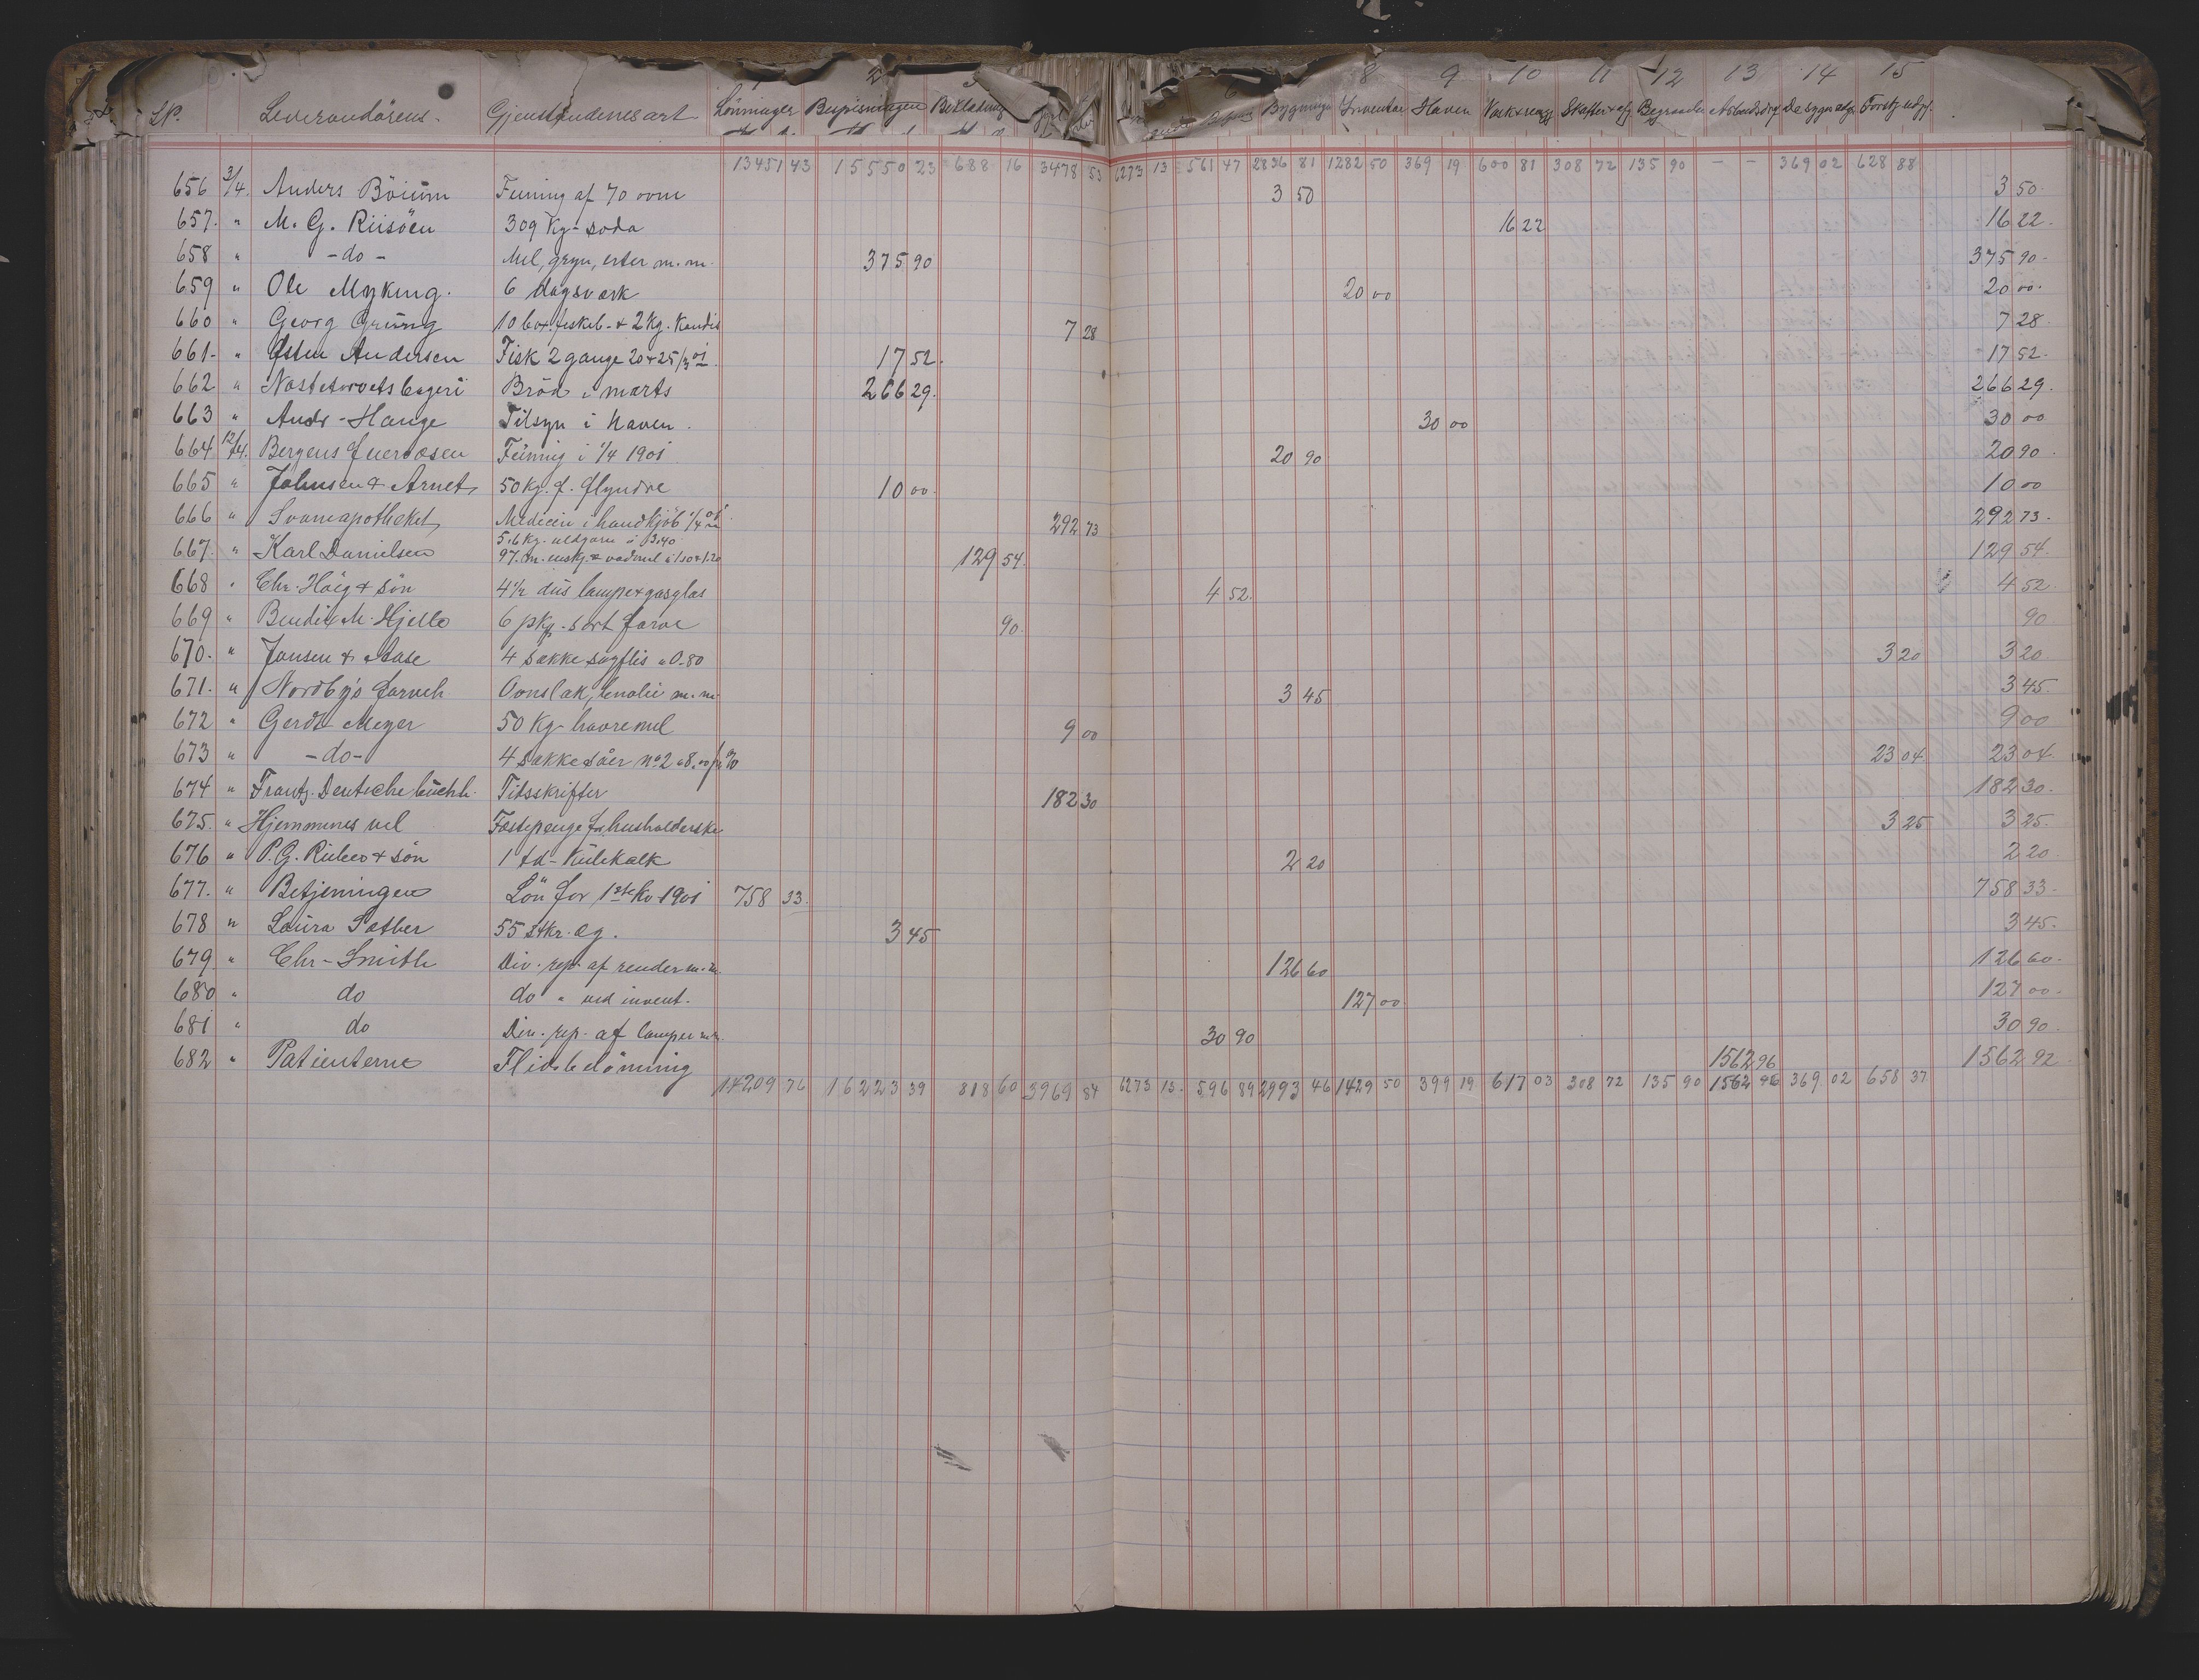 2 3 8 9 10 11 12 13 14 15
LN. Leverandörens Gjenstandenes art Lönninger Bespisningen Beklædning Bygninger Inventar Haven Vask & reng Skatter & afg. Begravelse Arbeidsdrg De syges Forskj. udgf.
13451 43 15550 23 688 16 3478 53 6273 13 561 47 2836 81 1282 50 369 19 600 81 308 72 135 90 — — 369 02 628 88
656 3/4. Anders Böium Feining af 70 ovne 3 50 3 50
657. " M. G. Riisöen 309 Kg soda 16 22 16 22
658 " - do - Mel, gryn, erter m.m. 375 90 375 90
659 " Ole Myking. 6 dagsværk 20 00 20 00
660 " Georg Grüng 10 box. fiskeb. & 2 Kg. Kandis 7 28 7 28
661. " Østen Andersen Fisk 2 gange 20 & 25/3 01 17 52 17 52
662 " Nøstetorvets bageri Bröd i marts 266 29 266 29
663 " Andr. Hauge Tilsyn i haven. 30 00 30 00
664 12/4. Bergens fuervæsen Feining i 1/4 1901 20 90 20 90
665 " Johnsen & Arnet 50 Kg. f. flyndre 10 00 10 00
666 " Svaneapotheket, Medicin i haandkjöb 1/4 01 292 73 292 73
667. " Karl Danielsen 5,6 Kg. uldgarn á 3,40 97. m. ensfg. & vadmel á 1.10 & 1.20 129 54 129 54
668 " Chr. Höeg & sön 4½ dus lampe & gasglas 4 52 4 52
669 " Bendix M. Hjelle 6 pkg. sort farve 90 90
670. " Jansen & Aase 4 sække sagflis a 0.80 3 20 3 20
671. " Nordby's farveh. Ovnslak, linolie m.m. 3 45 3 45
672 " Gerdt Meyer 50 Kg havremel 9 00 9 00
673 " - do - 4 sække såer No 2 a 8.00 23 04 23 04
674 " Frantz. Deutsche buchh. Tidsskrifter 182 30 182 30
675. " Hjemmenes vel Fæstepenge for husholderske 3 25 3 25
676 " P. G. Rieber & sön 1 td. Kulekalk 2 20 2 20
677. " Betjeningen Lön for 1ste Kv 1901 758 33 758 33
678 " Laura Sæther 55 stkr. æg. 3 45 3 45
679. " Chr. Smith Div. rep. af render m.m. 126 60 126 60
680 " do do " ved invent. 127 00 127 00
681 " do Div. rep. af lamper m.m. 30 90 30 90
682 " Patienterne Flidsbelönning 1562 96 1562 92
14209 76 16223 39 818 60 3969 84 6273 13 596 89 2993 46 1429 50 399 19 617 03 308 72 135 90 1562 96 369 02 658 37